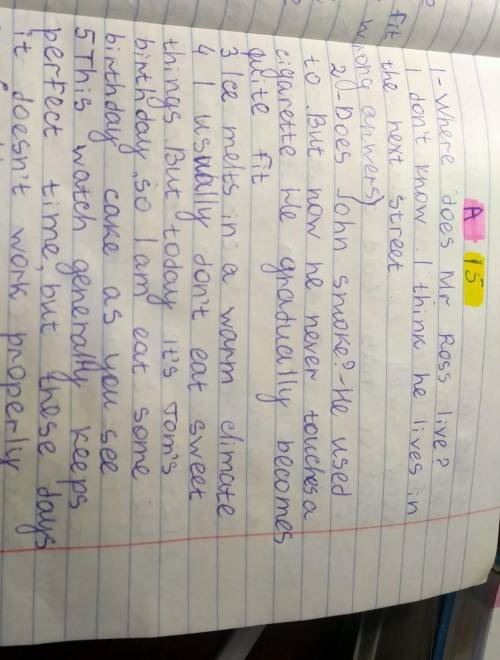 A 15
1-Where does Mr Ross live?
I don't know. I think he lives in
the next street
fit wrong answers)
2-Does John smoke?-He used
to. But now he never touches a
cigarette He gradually becomes
quite fit
3 Ice melts in a warm climate
4 I usually don't eat sweet
things But today it's Tom's
birthday, so I am eat some
birthday cake as you see
5 This watch generally keeps
perfect time, but these days
it doesn't work properly